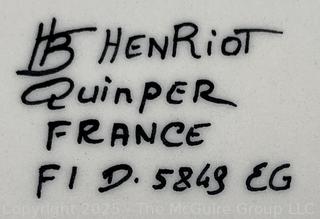 HB HENRIOT
QUIMPER
FRANCE
F1 D. 5849 EG
Copyright 2025 - The McGuire Group LLC